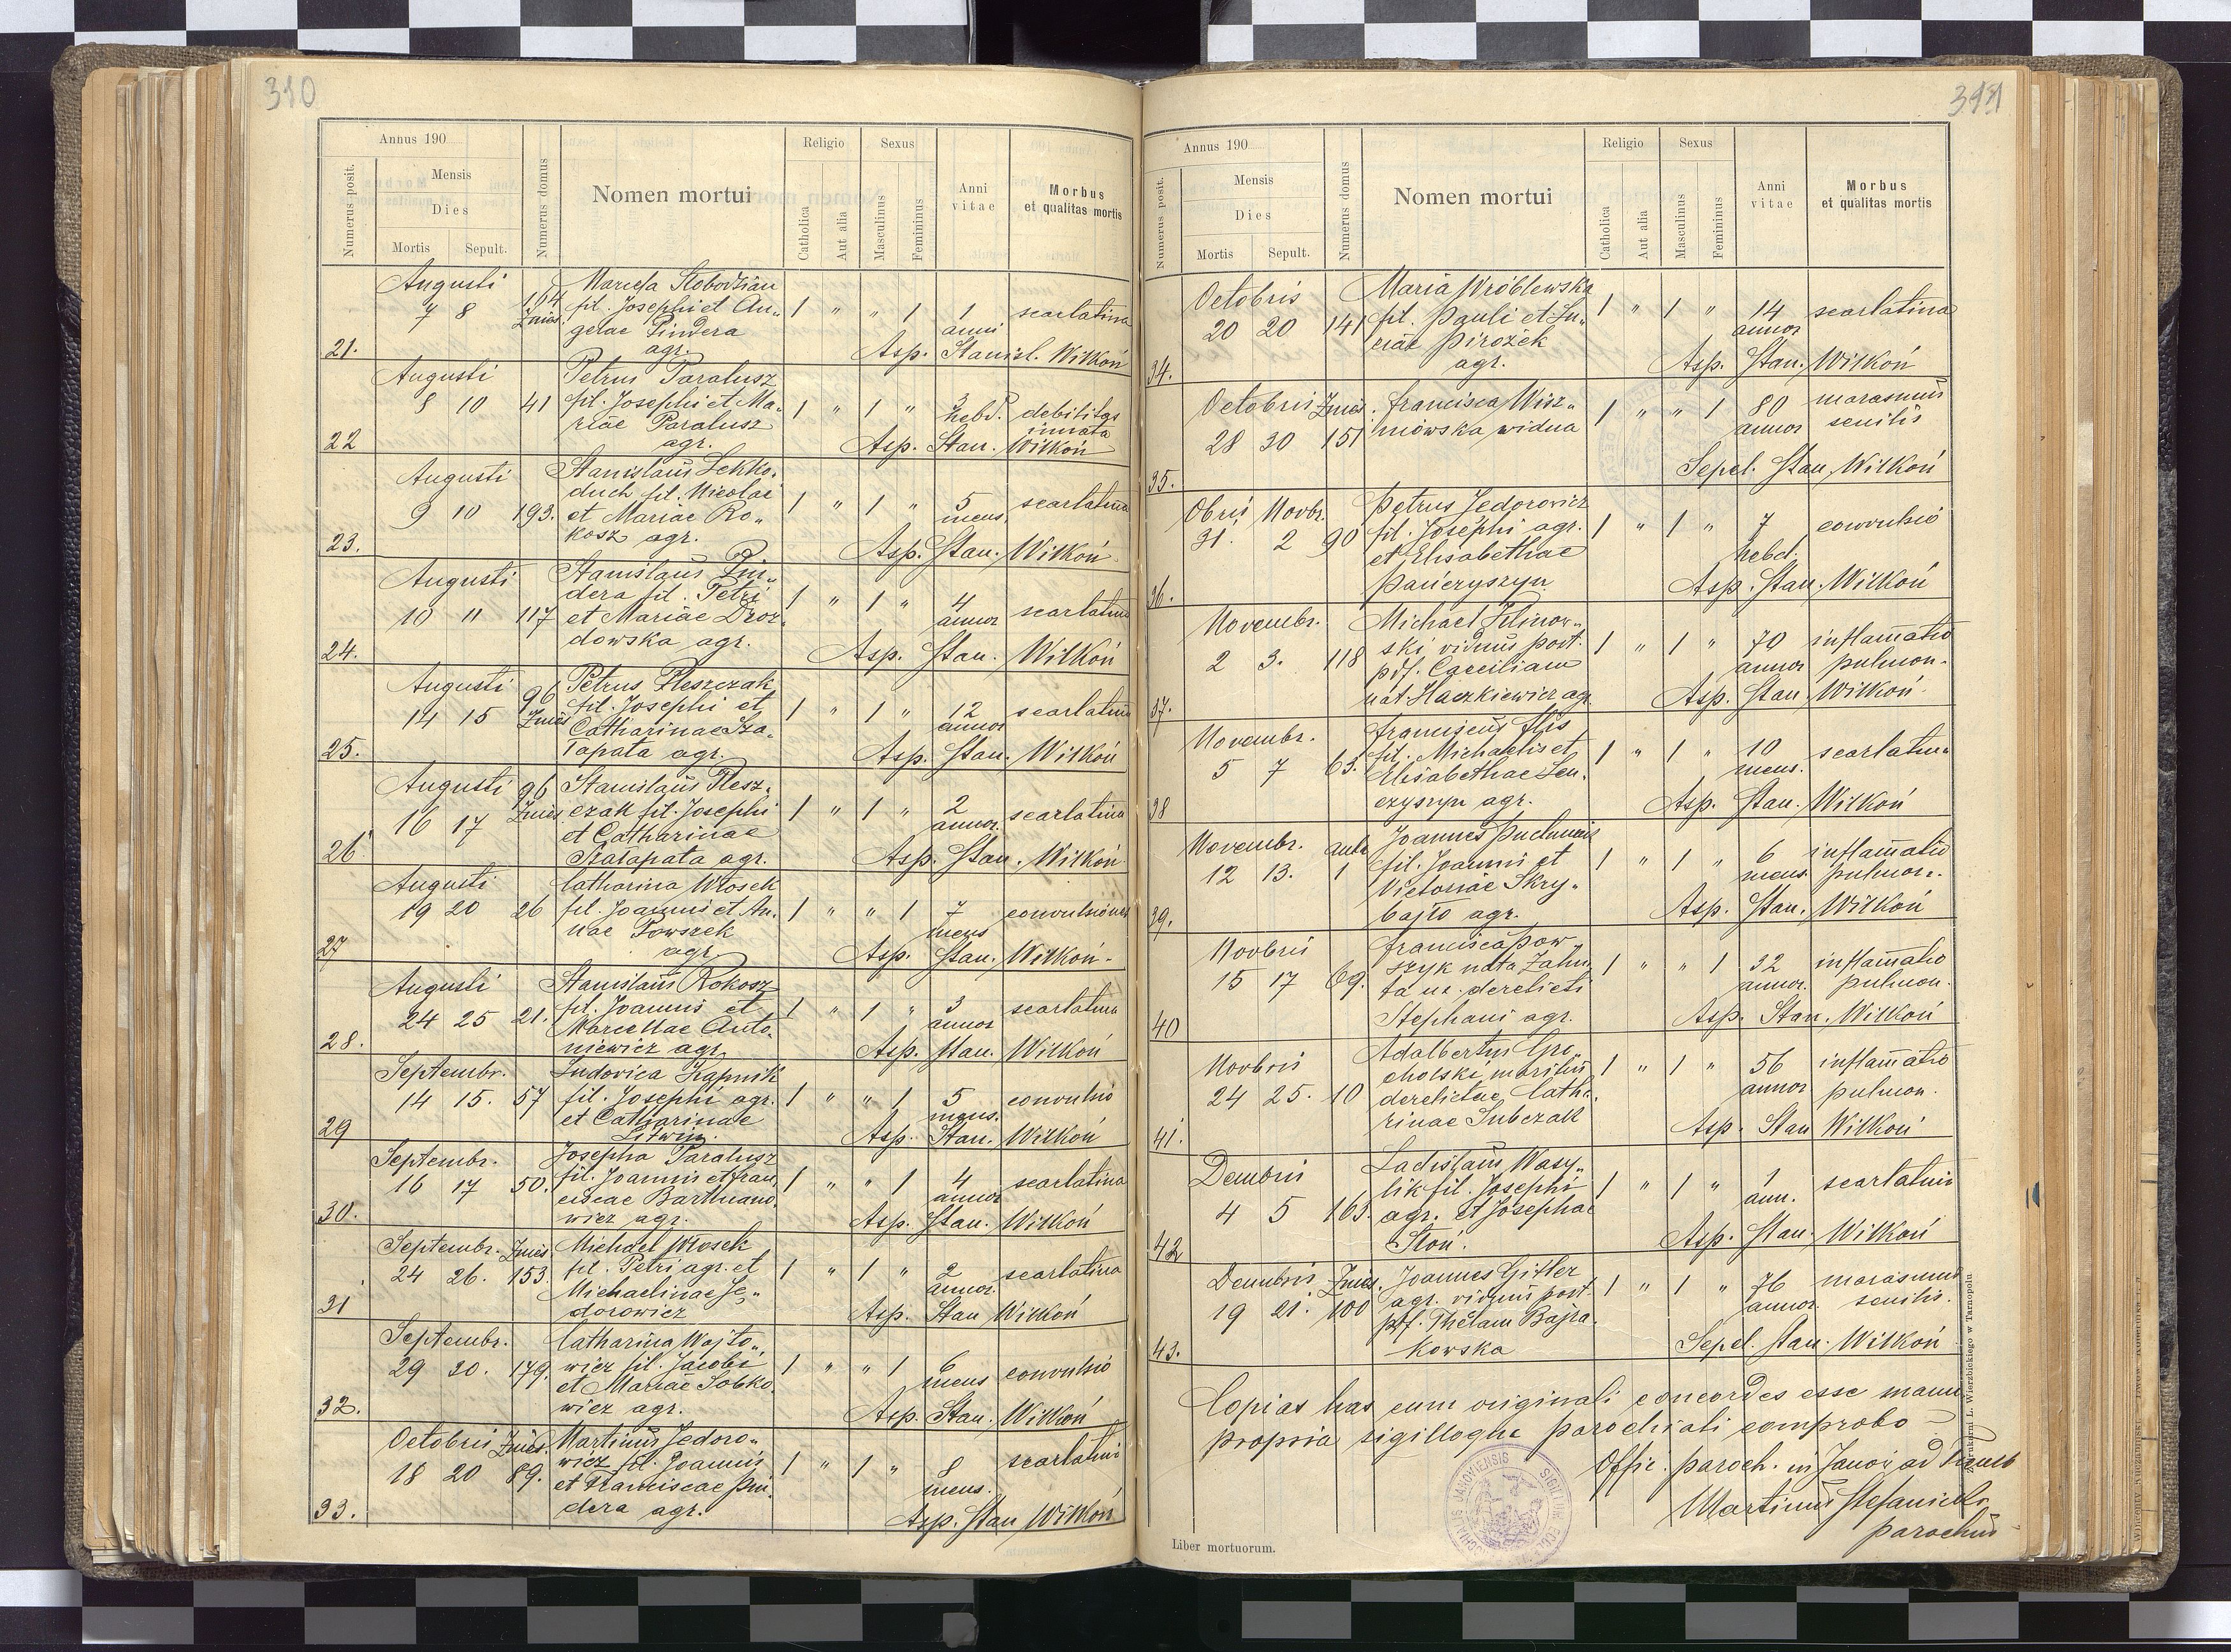 310
Annus 190
Religio
Sexus
Numerus posit.
Mensis
Dies
Mortis
Sepult.
Numerus domus
Nomen mortui
Catholica
Aut alia
Masculinus
Femininus
Anni
vitae
Morbus
et qualitas mortis
Augusti
7 8
164
21.
fil. Josephi et An„
gelae Pindera
agr.
1 „ „ 1
1
anni
scarlatina
Asp. Stanisl. Wilkoń
Augusti
8 10
41
22
Petrus Paralusz
fil. Josephi et Ma„
riae Paralusz
agr.
1 „ 1 „
3
hebd.
debilitas
innata
Asp. Stan. Wilkoń
Augusti
9 10
193.
23.
duch fil. Nicolai
et Mariae Ro„
kosz agr.
1 „ 1 „
5
mens.
scarlatina
Asp. Stan. Wilkoń
Augusti
10 11
117
24.
Stanislaus Pin„
dera fil. Petri
et Mariae Droz„
dowska agr.
1 „ 1 „
4
annor
scarlatina
Asp. Stan. Wilkoń
Augusti
14 15
96
25.
Petrus Pleszczak
fil. Josephi et
Catharinae Sza„
łapata agr.
1 „ 1 „
12
annor
scarlatina
Asp. Stan. Wilkoń
Augusti
16 17
96
26
Stanislaus Plesz„
czak fil. Josephi
et Catharinae
Szałapata agr.
1 „ 1 „
2
annor.
scarlatina
Asp. Stan. Wilkoń
Augusti
19 20
26
27
Catharina Włosek
fil. Joannis et An„
nae Powszek
agr
1 „ „ 1
7
mens
convulsiones
Asp. Stan. Wilkoń
Augusti
24 25
21.
28.
Stanislaus Rokosz
fil. Joannis et
Marcellae Anto„
niewicz agr.
1 „ 1 „
3
annor
scarlatina
Asp. Stan. Wilkoń
Septembr.
14 15.
57
29
Ludovica Kapnik
fil. Josephi agr.
et Catharinae
Litwin.
1 „ „ 1
5
mens.
convulsio
Asp. Stan. Wilkoń
Septembr.
16 17
50.
30.
Josepha Paralusz
fil. Joannis et Fran„
ciscae Bartmano„
wicz agr.
1 „ „ 1
4
annor
scarlatina
Asp. Stan. Wilkoń
Septembr.
24 26.
153.
31
Michael Włosek
fil. Petri agr. et
Michaelinae Fe„
dorowicz
1 „ 1 „
2
annor.
scarlatina
Asp. Stan Wilkoń
Septembr.
29 30.
179.
32.
Catharina Wojto„
wicz fil. Jacobi
et Mariae Sobko„
wicz agr.
1 „ „ 1
6
mens
convulsio
Asp. Stan. Wilkoń
Octobris
18 20
89.
33.
Martinus Fedoro„
wicz fil. Joannis
et Franciscae Pin„
dera agr.
1 „ 1 „
8
mens.
scarlatina
Asp. Stan Wilkoń
311
Annus 190
Religio
Sexus
Numerus posit.
Mensis
Dies
Mortis
Sepult.
Numerus domus
Nomen mortui
Catholica
Aut alia
Masculinus
Femininus
Anni
vitae
Morbus
et qualitas mortis
Octobris
20 20
141
34.
Maria Wróblewska
fil. Pauli et Lu„
ciae Pirożek
agr.
1 „ 1 „
14
annor
scarlatina
Asp. Stan. Wilkoń
Octobris
28 30
151
35.
Francisca Wisz„
niowska vidua
1 „ „ 1
80
annor
marasmus
senilis
Sepel. Stan. Wilkoń
Obris Novbr.
31. 2
90
36.
Petrus Fedorowicz
fil. Josephi agr.
et Elisabethae
Pańczyszyn
1 „ 1 „
7
hebd.
convulsio
Asp. Stan. Wilkoń
Novembr.
2 3.
118
37.
Michael Filinow„
ski viduus post.
pdf. Caeciliam
nat. Haczkiewicz agr
1 „ 1 „
70
annor
inflamatio
pulmon.
Asp. Stan. Wilkoń
Novembr.
5 7
63.
38
Franciscus Flis
fil. Michaelis et
Elisabethae Sen„
czyszyn agr.
1 „ 1 „
10
mens.
scarlatina
Asp. Stan. Wilkoń
Novembr.
12 13.
1
39.
fil. Joannis et
Victoriae Skry„
bajło agr.
1 „ 1 „
6
mens
inflamatio
pulmon.
Asp. Stan. Wilkoń
Novbris
15 17
69.
40
Francisca Pow„
szyk nata Zahu„
ta ux. derelicti
Stephani agr.
1 „ „ 1
32
annor.
inflamatio
pulmon.
Asp. Stan. Wilkoń
Novbris
24 25.
10
41.
Adalbertus Gro„
cholski maritus
derelictae Catha„
rinae Subczak
1 „ 1 „
56
annor
inflamatio
pulmon.
Asp. Stan Wilkoń
Decmbris
4 5
163.
42
Ladislaus Wasy„
lik fil. Josephi
agr. et Josephae
Słoń.
1 „ 1 „
1
ann.
scarlatina
Asp. Stan. Wilkoń
Decmbris
19 21.
100
43.
Joannes Gitler
agr. viduus post.
pdf. Theclam Bajra„
kowska
1 „ 1 „
76
annor.
marasmus
senilis.
Sepel. Stan. Wilkoń
Copias has cum originali concordes esse manu
propria sigilloque parochiali comprobo
Offic. paroch. in Janów ad Tremb
Martinus Stefanicki
parochus
Liber mortuorum.